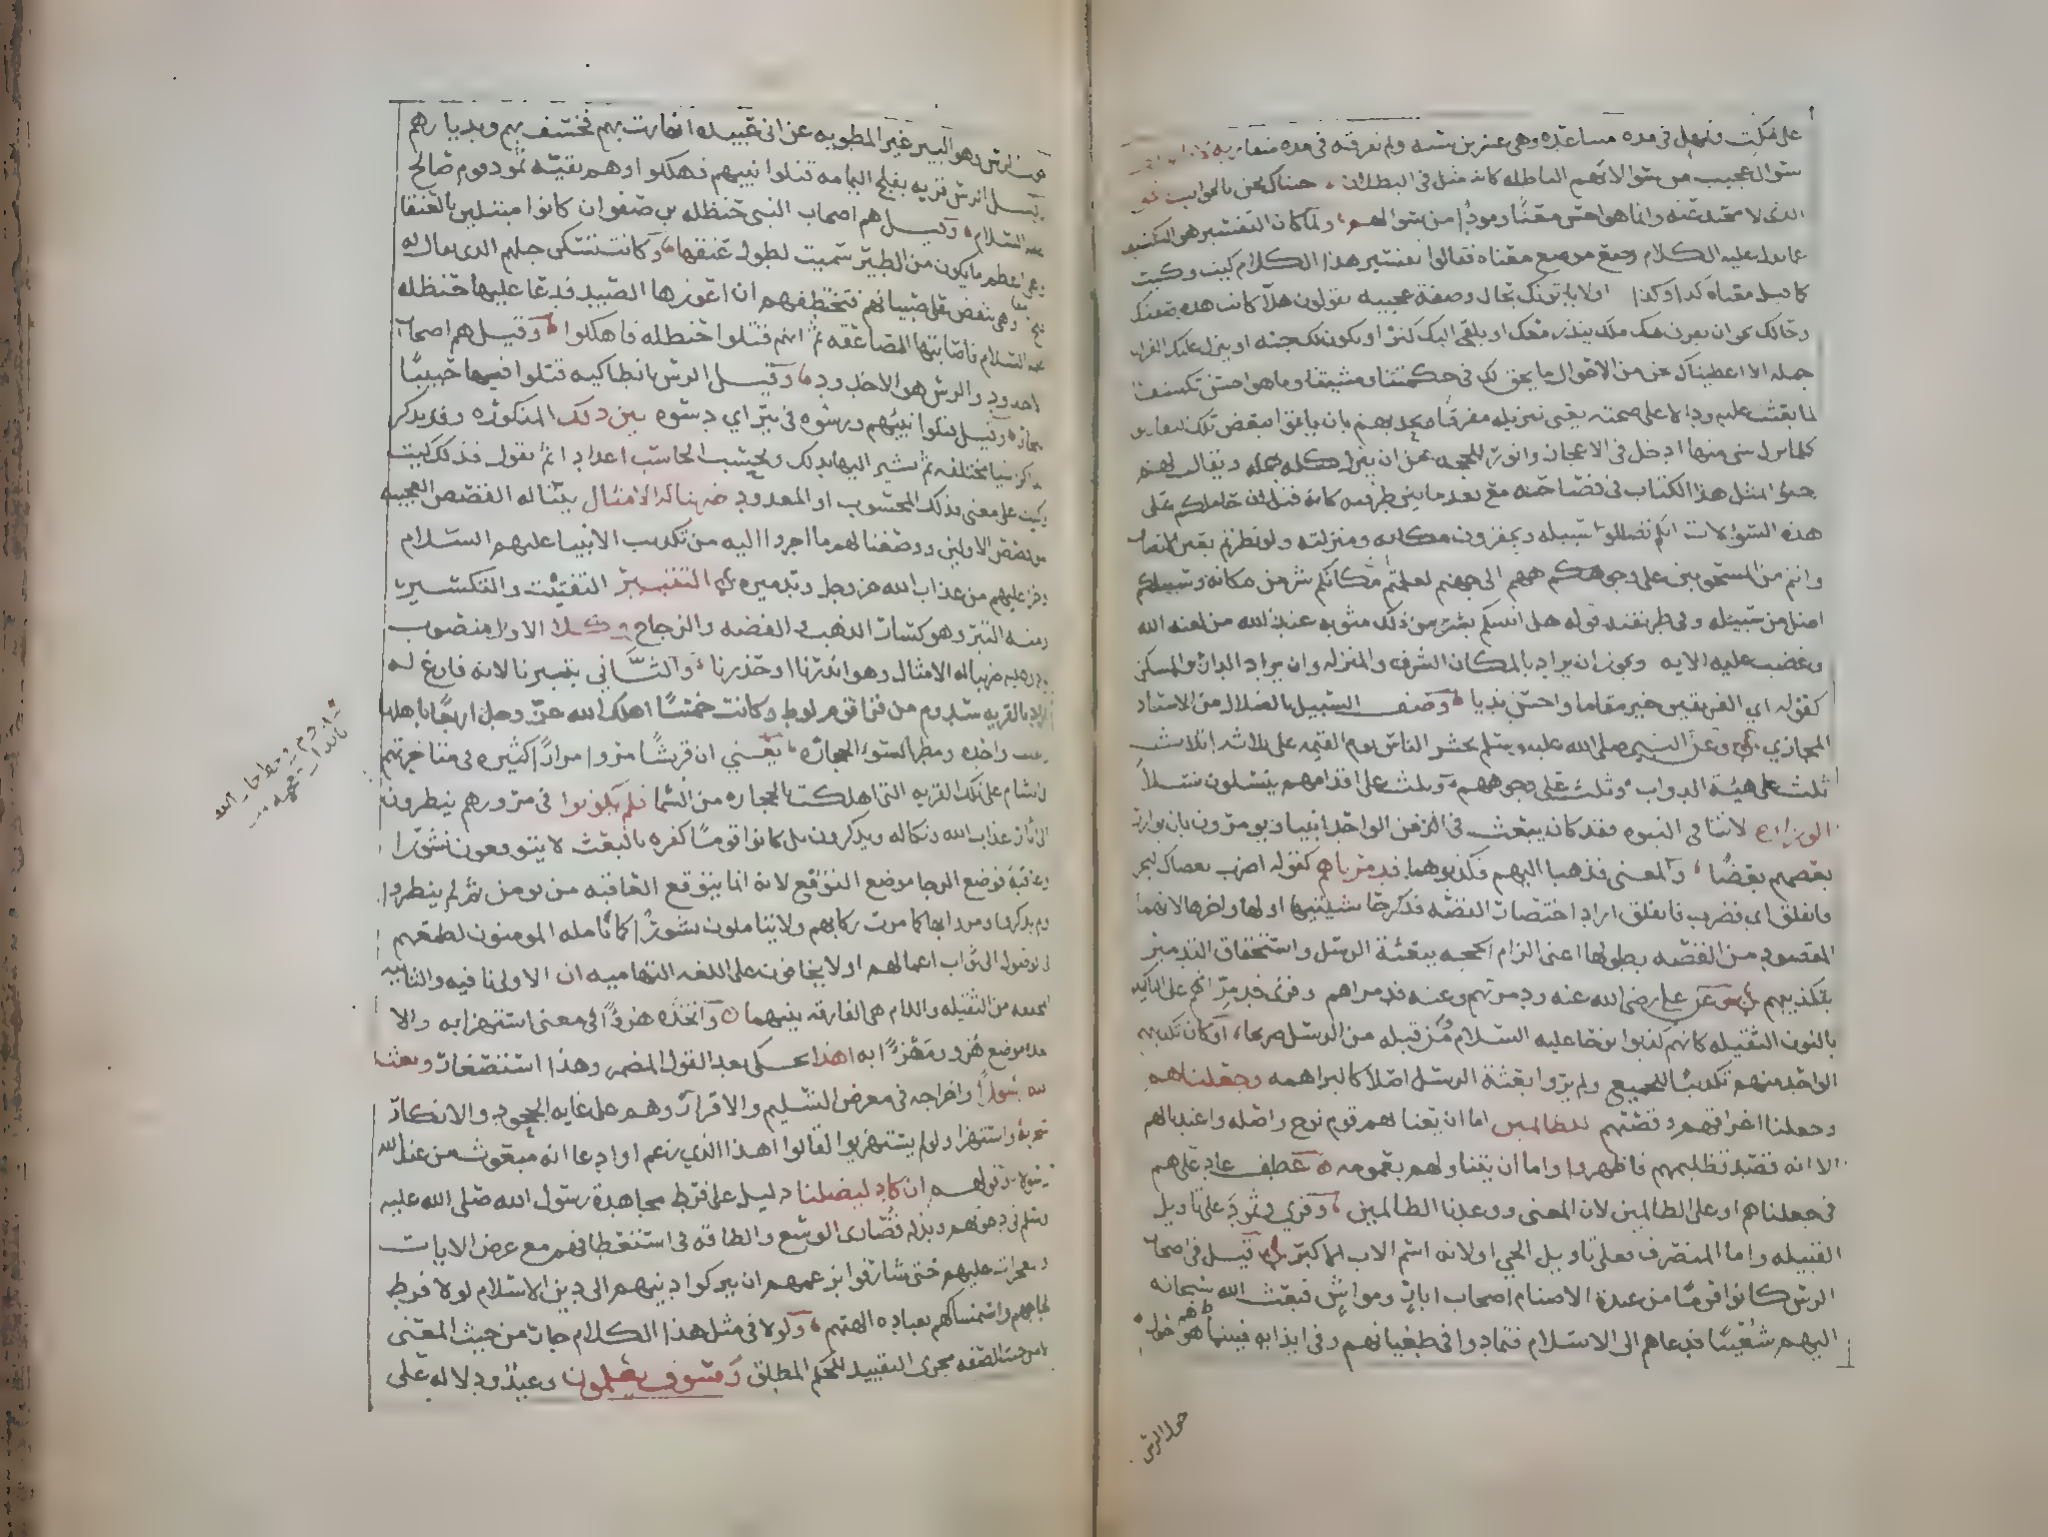 على مكث وتمهل في مده متباعده وهي عشرين سنه ولم نفرقه في مده متقاربه ولا ياتونك
بسوال عجيب من سوالاتهم الباطله كانه مثل في البطلان الا جئناك نحن بالجواب الحق
الذي لا محيد عنه وانما هو احسن معنى ومودى من سوالهم ولما كان التفسير هو التكشيف
عما يدل عليه الكلام وضع موضع معناه فقالوا تفسير هذا الكلام كيت وكيت
كما قيل معناه كذا وكذا اولا ياتونك بحال وصفة عجيبه يقولون هلا كانت هذه صفتك
وحالك نحو ان يقرن بك ملك ينذر معك او يلقى اليك كنز او يكون لك جنه او ينزل عليك القران
جمله الا اعطيناك نحن من الاحوال ما يحق لك في حكمتنا ومشيتنا وما هو احسن تكشيفا
لما بعثت عليه ودلالة على صحته يعني تنزيله مفرقا وتحديهم بان ياتوا ببعض تلك التفاريق
كلما نزل شي منها ادخل في الاعجاز وانور للحجه من ان ينزل كله جمله ويقال لهم
جيوا بمثل هذا الكتاب في فصاحته مع بعد ما بين طرفيه كانه قيل ان حاملكم على
هذه السوالات انكم تضللون سبيله وتحقرون مكانه ومنزلته ولو نظرتم بعين الانصاف
وانتم من المسحوبين على وجوهكم الى جهنم لعلمتم ان مكانكم شر من مكانه وسبيلكم
اضل من سبيله وفي طريقته قوله هل انبيكم بشر من ذلك مثوبه عند الله من لعنه الله
وغضب عليه الايه ويجوز ان يراد بالمكان الشرف والمنزله وان يراد الدار والمسكن
كقوله اي الفريقين خير مقاما واحسن نديا ووصف السبيل بالضلال من الاسناد
المجازي وعن النبي صلى الله عليه وسلم يحشر الناس يوم القيمه على ثلاثه اثلاث
ثلث على هيئة الدواب وثلث على وجوههم وثلث على اقدامهم ينسلون نسلا
الوزاره لا تنافي النبوه فقد كان يبعث في الزمن الواحد انبيا ويومرون بان يوازر
بعضهم بعضا والمعنى فذهبا اليهم فكذبوهما فدمرناهم كقوله اضرب بعصاك البحر
فانفلق اي فضرب فانفلق اراد اختصار القصه فذكر حاشيتيها اولها واخرها لانهما
المقصود من القصه بطولها اعني الزام الحجه ببعثة الرسل واستحقاق التدمير
بتكذيبهم وعن علي رضي الله عنه ودمرتهم وعنه فدمراهم وقرى فدمرانهم على التاكيد
بالنون الثقيله كانهم كذبوا نوحا عليه السلام ومن قبله من الرسل صريحا او كان تكذيبهم
الواحد منهم تكذيبا للجميع ولم يروا بعثة الرسل اصلا كالبراهمه وجعلناهم
وجعلنا اغراقهم وقصتهم للظالمين اما ان يعنا بهم قوم نوح واصله واعتدنا لهم
الا انه قصد تظليمهم فاظهر واما ان يتناولهم بعمومه عطف عاد على هم
في جعلناهم او على الظالمين لان المعنى ووعدنا الظالمين وقري وثمود على تاويل
القبيله واما المنصرف فعلى تاويل الحي او لانه اسم الاب الاكبر قيل في اصحاب
الرس كانوا قوما من عبدة الاصنام اصحاب ابار ومواش فبعث الله سبحانه
اليهم شعيبا فدعاهم الى الاسلام فتمادوا في طغيانهم وفي ايذايه فبينما هم حول
حول الرس
الرس وهو البير غير المطويه عن ابي عبيده انهارت بهم فخسف بهم وبديارهم
وقيل الرس قريه بفلج اليمامه قتلوا نبيهم فهلكوا وهم بقيه ثمود قوم صالح
عليه السلام وقيل هم اصحاب النبي حنظله بن صفوان كانوا مبتلين بالعنقا
وهي اعظم ما يكون من الطير سميت لطول عنقها وكانت تسكن جبلهم الذي يقال له
فتخ وهي تنقض على صبيانهم فتخطفهم ان اعوزها الصيد فدعا عليها حنظله
عليه السلام فاصابتها الصاعقه ثم انهم قتلوا حنظله فاهلكوا وقيل هم اصحاب
الاخدود والرس هو الاخدود وقيل الرس بانطاكيه قتلوا فيها حبيبا
النجار وقيل كذبوا نبيهم ورسوه في بير اي دسوه بين ذلك المذكوره وقد يذكر
الذاكر اشيا مختلفه ثم يشير اليها بذلك ويحسب الحاسب اعدادا ثم يقول فذلك كيت
وكيت على معنى فذلك المحسوب او المعدود ضربنا له الامثال بينا له القصص العجيبه
من قصص الاولين ووصفنا لهم ما اجروا اليه من تكذيب الانبيا عليهم السلام
وجرى عليهم من عذاب الله عز وجل وتدميره التتبير التفتيت والتكسير
ومنه التبر وهو كسار الذهب والفضه والزجاج وكلا الاول منصوب
بما دل عليه ضربنا له الامثال وهو انذرنا او حذرنا والثاني بتبرنا لانه فارغ له
اراد بالقريه سدوم من قرى قوم لوط وكانت خمسا اهلك الله عز وجل اربعا باهلها
وبقيت واحده ومطر السوء الحجاره يعني ان قريشا مروا مرارا كثيره في متاجرهم
الى الشام على تلك القريه التي اهلكت بالحجاره من السما فلم يكونوا في مرورهم ينظرون
الى اثار عذاب الله ونكاله ويذكرون بل كانوا قوما كفره بالبعث لا يتوقعون نشورا
وعاقبة فوضع الرجا موضع التوقع لانه انما يتوقع العاقبه من يومن فمن ثم لم ينظروا
ولم يذكروا ومروا بها كما مرت ركابهم ولا ياملون نشورا كما يامله المومنون لطمعهم
في الوصول الى ثواب اعمالهم او لا يخافون على اللغه التهاميه ان الاولى نافيه والثانيه
مخففه من الثقيله واللام هي الفارقه بينهما واتخذه هزوا في معنى استهزا به والا
صل موضع هزو ومهزوا به اهذا محكى بعد القول المضمر وهذا استصغار وبعثه
الله رسولا واخراجه في معرض التسليم والاقرار وهم على غايه الجحود والانكار
سخرية واستهزا ولو لم يستهزيوا لقالوا اهذا الذي زعم او ادعا انه مبعوث من عند الله
رسولا وقولهم ان كاد ليضلنا دليل على فرط مجاهدة رسول الله صلى الله عليه
وسلم في دعوتهم وبذله قصارى الوسع والطاقه في استعطافهم مع عرض الايات
والمعجزات عليهم حتى شارفوا بزعمهم ان يتركوا دينهم الى دين الاسلام لولا فرط
لجاجهم واستمساكهم بعباده الهتهم ولولا في مثل هذا الكلام جار من حيث المعنى
لا من حيث الصنعه مجرى التقييد للحكم المطلق وسوف يعلمون وعيد ودلاله على